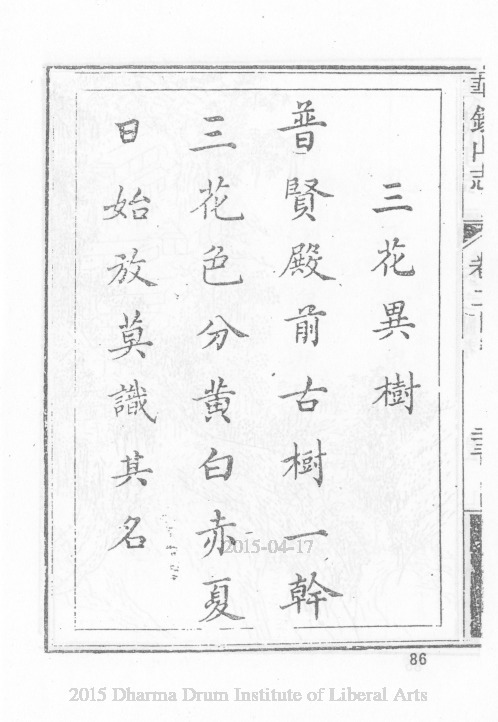 三花異樹
普賢殿前古樹一幹
三花色分黄白赤夏
日始放莫識其名
鍬山志
卷二
2015-04-17
86
2015 Dharma Drum Institute of Liberal Arts